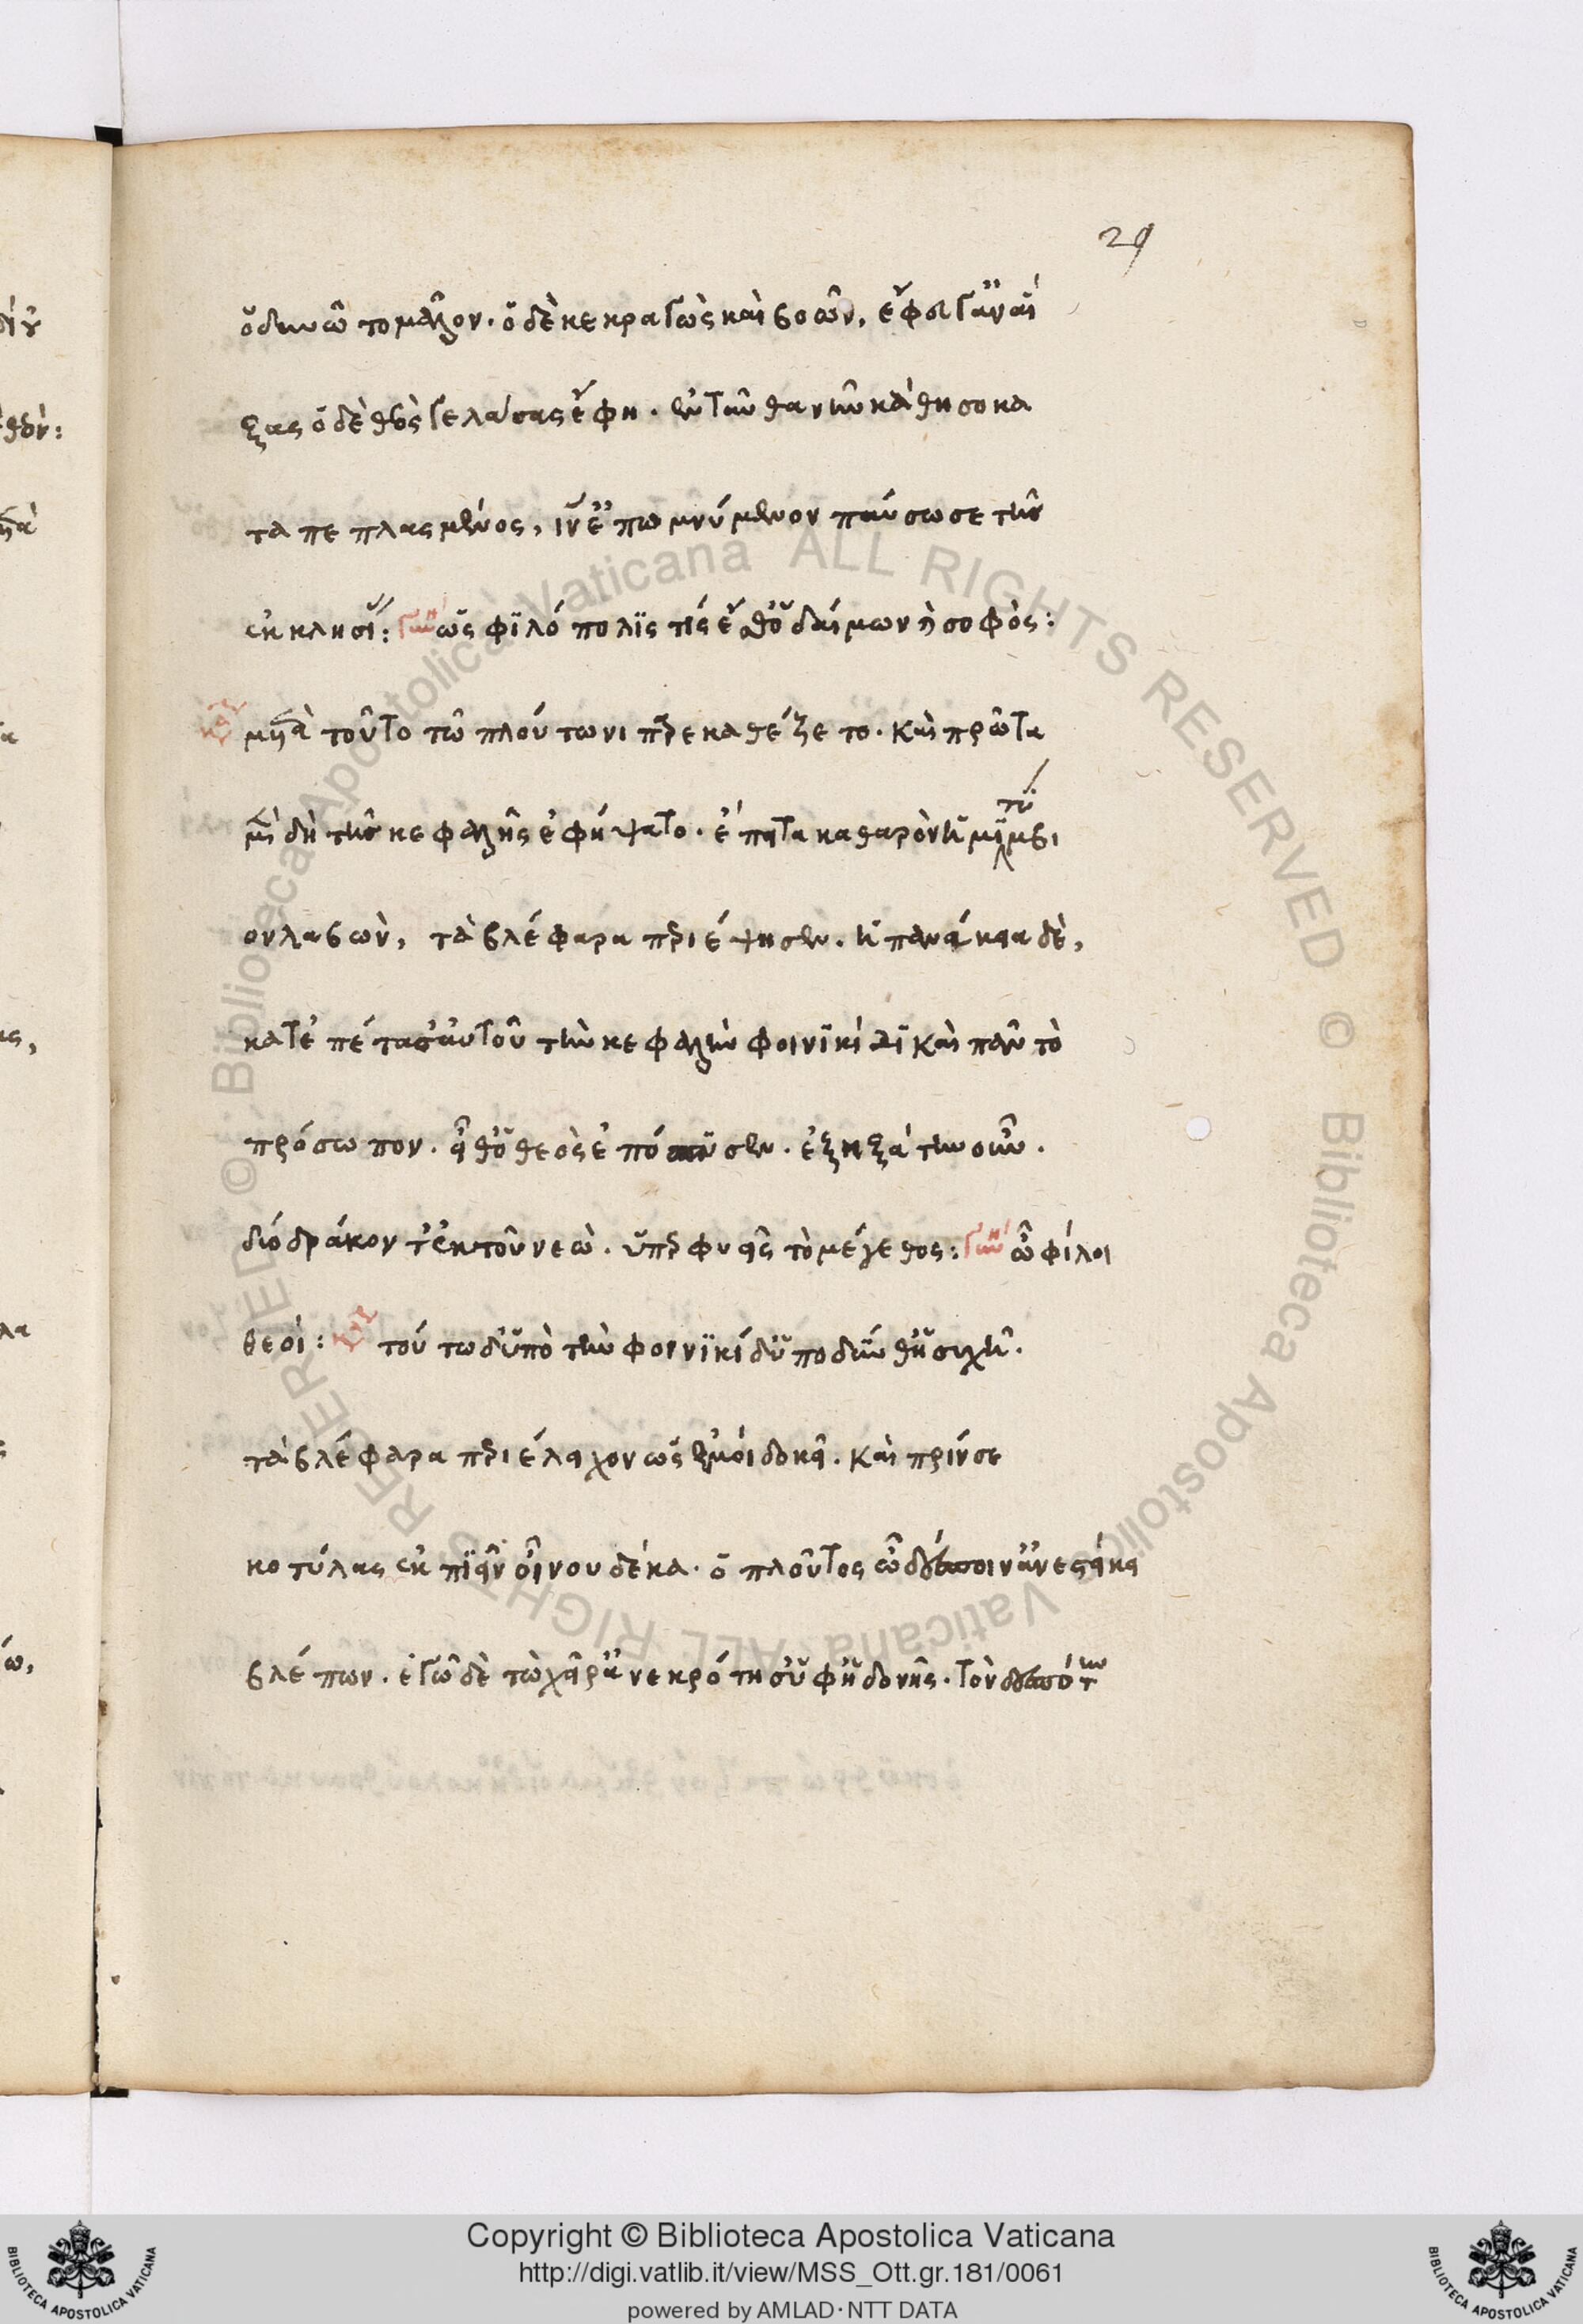 29
ὀδυνᾶτο μᾶλλον. ὁ δὲ κεκραγὼς καὶ βοῶν, ἔφευγ' ἀναΐ
ξας ὁ δὲ θεὸς γελάσας ἔφη. ἐνταῦθα νῦν κάθησο κα
ταπεπλασμένος, ἵν' ἐπομνύμενον παύσω σε τῆς
ἐκκλησί: γυνὴ ὡς φιλόπολίς τίς ἐσθ' ὁ δαίμων ἢ σοφὸς:
καρ μετὰ τοῦτο τῷ πλούτωνι παρεκαθέζετο. καὶ πρῶτα
μὲν δὴ τῆς κεφαλῆς ἐφήψατο. ἔπειτα καθαρὸν ἡμιτύμβι
ον λαβὼν, τὰ βλέφαρα περιέψησεν. ἡ πανάκεια δὲ,
κατεπέτασ' αὐτοῦ τὴν κεφαλὴν φοινικίδι καὶ πᾶν τὸ
πρόσωπον. εἶθ' ὁ θεὸς ἐπόππυσεν. ἐξηξάτην οὖν.
δύο δράκοντ' ἐκ τοῦ νεὼ. ὑπερφυεῖς τὸ μέγεθος: γυνὴ ὦ φίλοι
θεοί: καρ τούτω δ' ὑπὸ τὴν φοινικίδ' ὑποδύνθ' ἡσυχῆ.
τὰ βλέφαρα περιέλειχον ὥς ἐμοί δοκεῖ. καὶ πρίν σε
κοτύλας ἐκπιεῖν οἴνου δέκα. ὁ πλοῦτος ὦ δέσποιν' ἀνεστήκει
βλέπων. ἐγὼ δὲ τὼ χεῖρ' ἀνεκρότησ' ὑφ' ἡδονῆς. τὸν δεσπότην